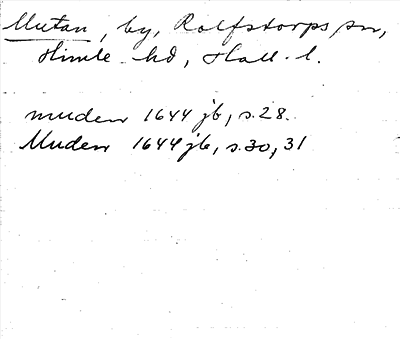 Mutan, by, Rolfstorps sn,
Himle hd, Hall. l.
muden 1644 jb, s. 28.
Muden 1644 jb, s. 30, 31